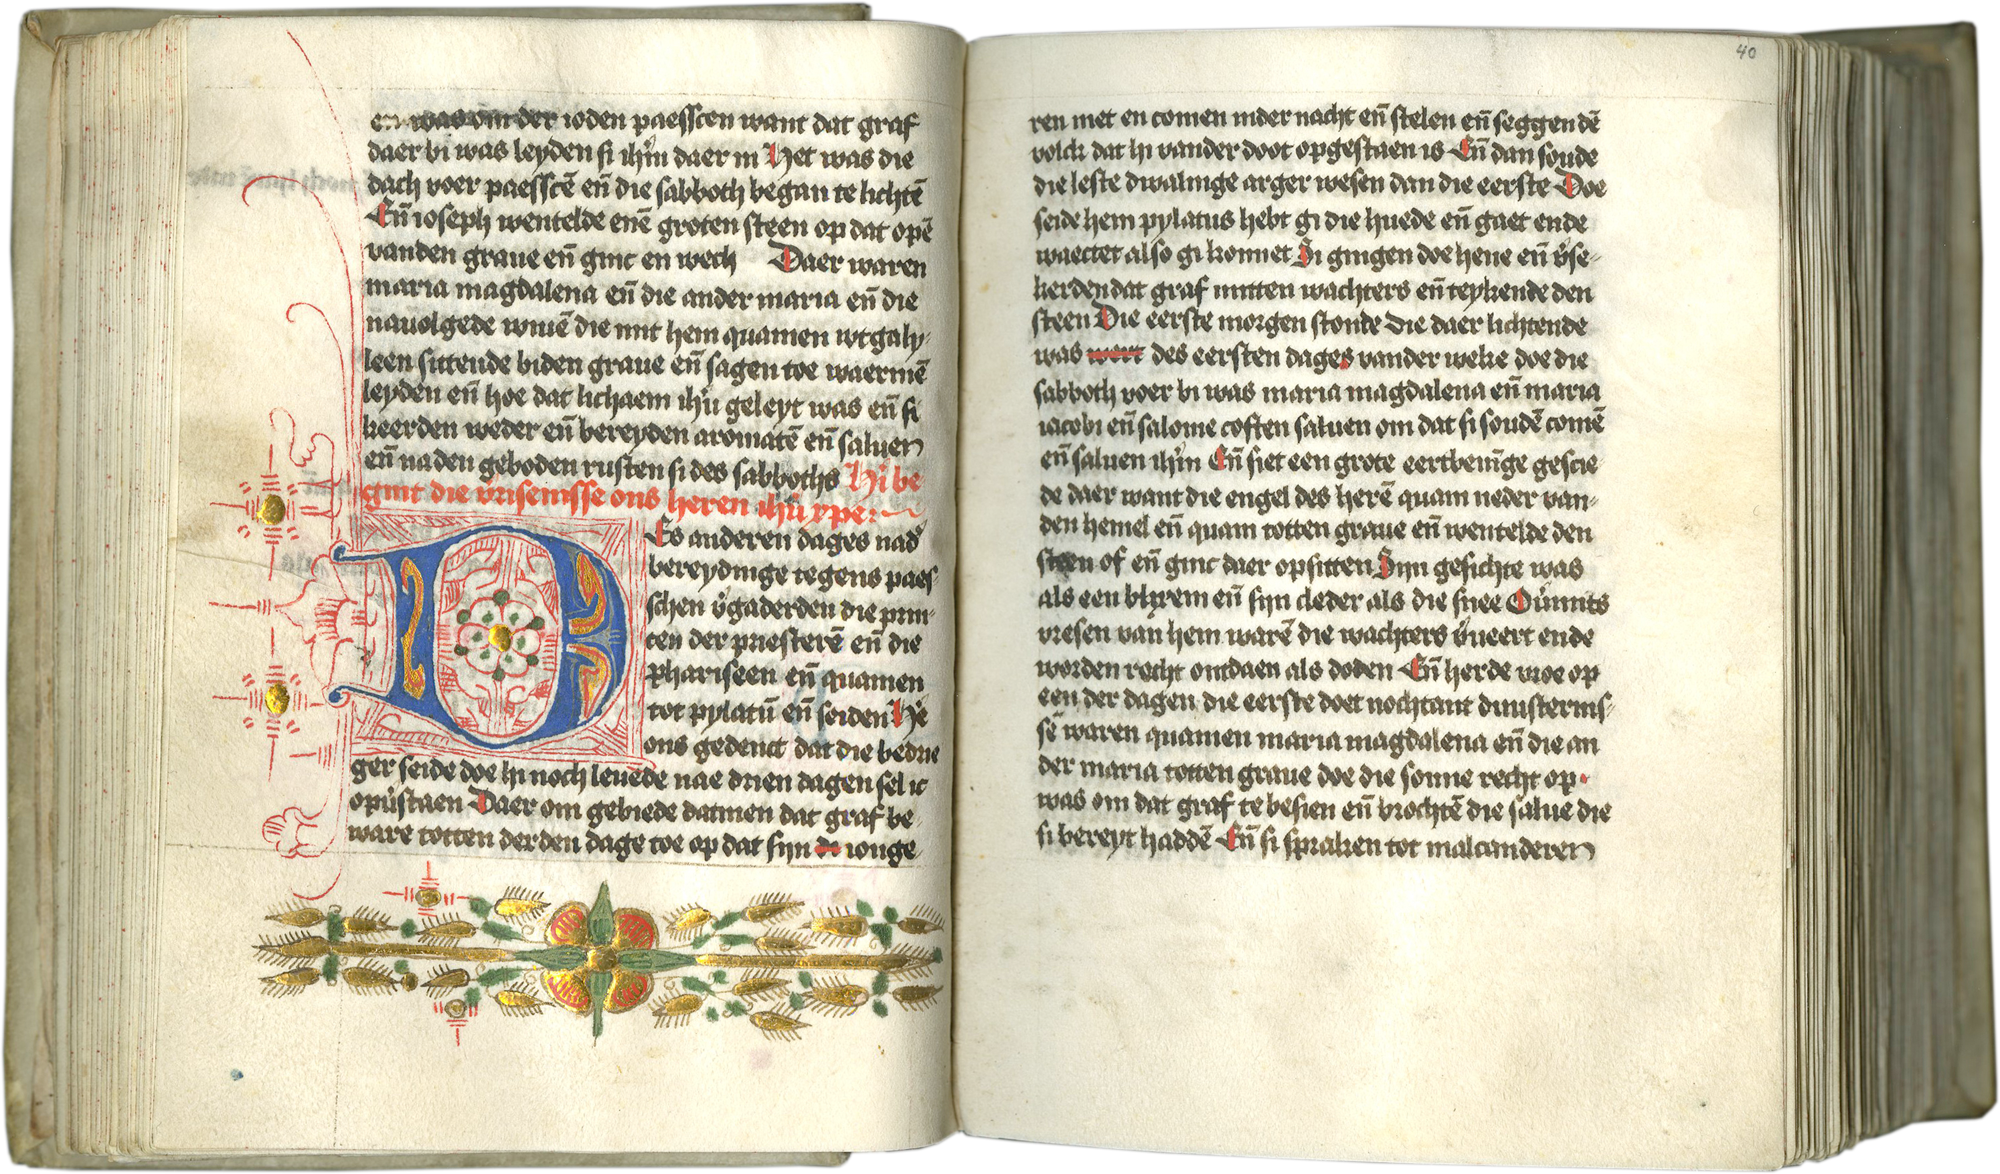 en was om der ioden paesscen want dat graf
daer bi was leyden si ihm̄ daer in Het was die
dach voer paesscē en̄ die sabboth began te lichtē
En̄ ioseph wentelde enē groten steen op dat opē
vanden graue en̄ ginc en wech Daer waren
maria magdalena en̄ die ander maria en̄ die
nauolgede wiuē die mit hem quamen wtgaly-
leen sittende biden graue en̄ sagen toe waer mē
leyden en̄ hoe dat lichaem ihū geleyt was en̄ si
keerden weder en̄ bereyden aromatē en̄ saluen
en̄ na den geboden rusten si des sabboths Hi be
gint die v̄risenisse ons heren ihū xpe:
Es anderen dages nad̄
bereydinge tegens paes-
schen v̄gaderden die prin-
cen der priesterē en̄ die
phariseen en̄ quamen
tot pylatū en̄ seiden He
ons gedenct dat die bedrie
ger seide doe hi noch leuede nae drien dagen sel ic
opv̄staen Daer om gebiede datmen dat graf be-
ware totten derden dage toe op dat sijn di ionge-
40
ren niet en comen inder nacht en̄ stelen en̄ seggen dē
volck dat hi vander doot opgestaen is En̄ dan soude
die leste dwalinge arger wesen dan die eerste Doe
seide hem pylatus hebt gi die huede en̄ gaet ende
waectet also gi konnet Si gingen doe hene en̄ v̄se-
kerden dat graf mitten wachters en̄ teykende den
steen Die eerste morgen stonde die daer lichtende
was wert des eersten dages vander weke doe die
sabboth voer bi was maria magdalena en̄ maria
iacobi en̄ salome coften saluen om dat si soudē comē
en̄ saluen ihm̄ En̄ siet een grote eertbeuīge gescie
de daer want die engel des herē quam neder van-
den hemel en̄ quam totten graue en̄ wentelde den
steen of en̄ ginc daer op sitten Sijn gesichte was
als een blixem en̄ sijn cleder als die snee Ouermits
vresen van hem warē die wachters v̄ueert ende
worden recht ontdaen als doden En̄ herde vroe op
een der dagen die eerste doet nochtant duusternis-
sē waren quamen maria magdalena en̄ die an
der maria totten graue doe die sonne recht op
was om dat graf te besien en̄ brochtē die salue die
si bereyt haddē En̄ si spraken tot malcanderen